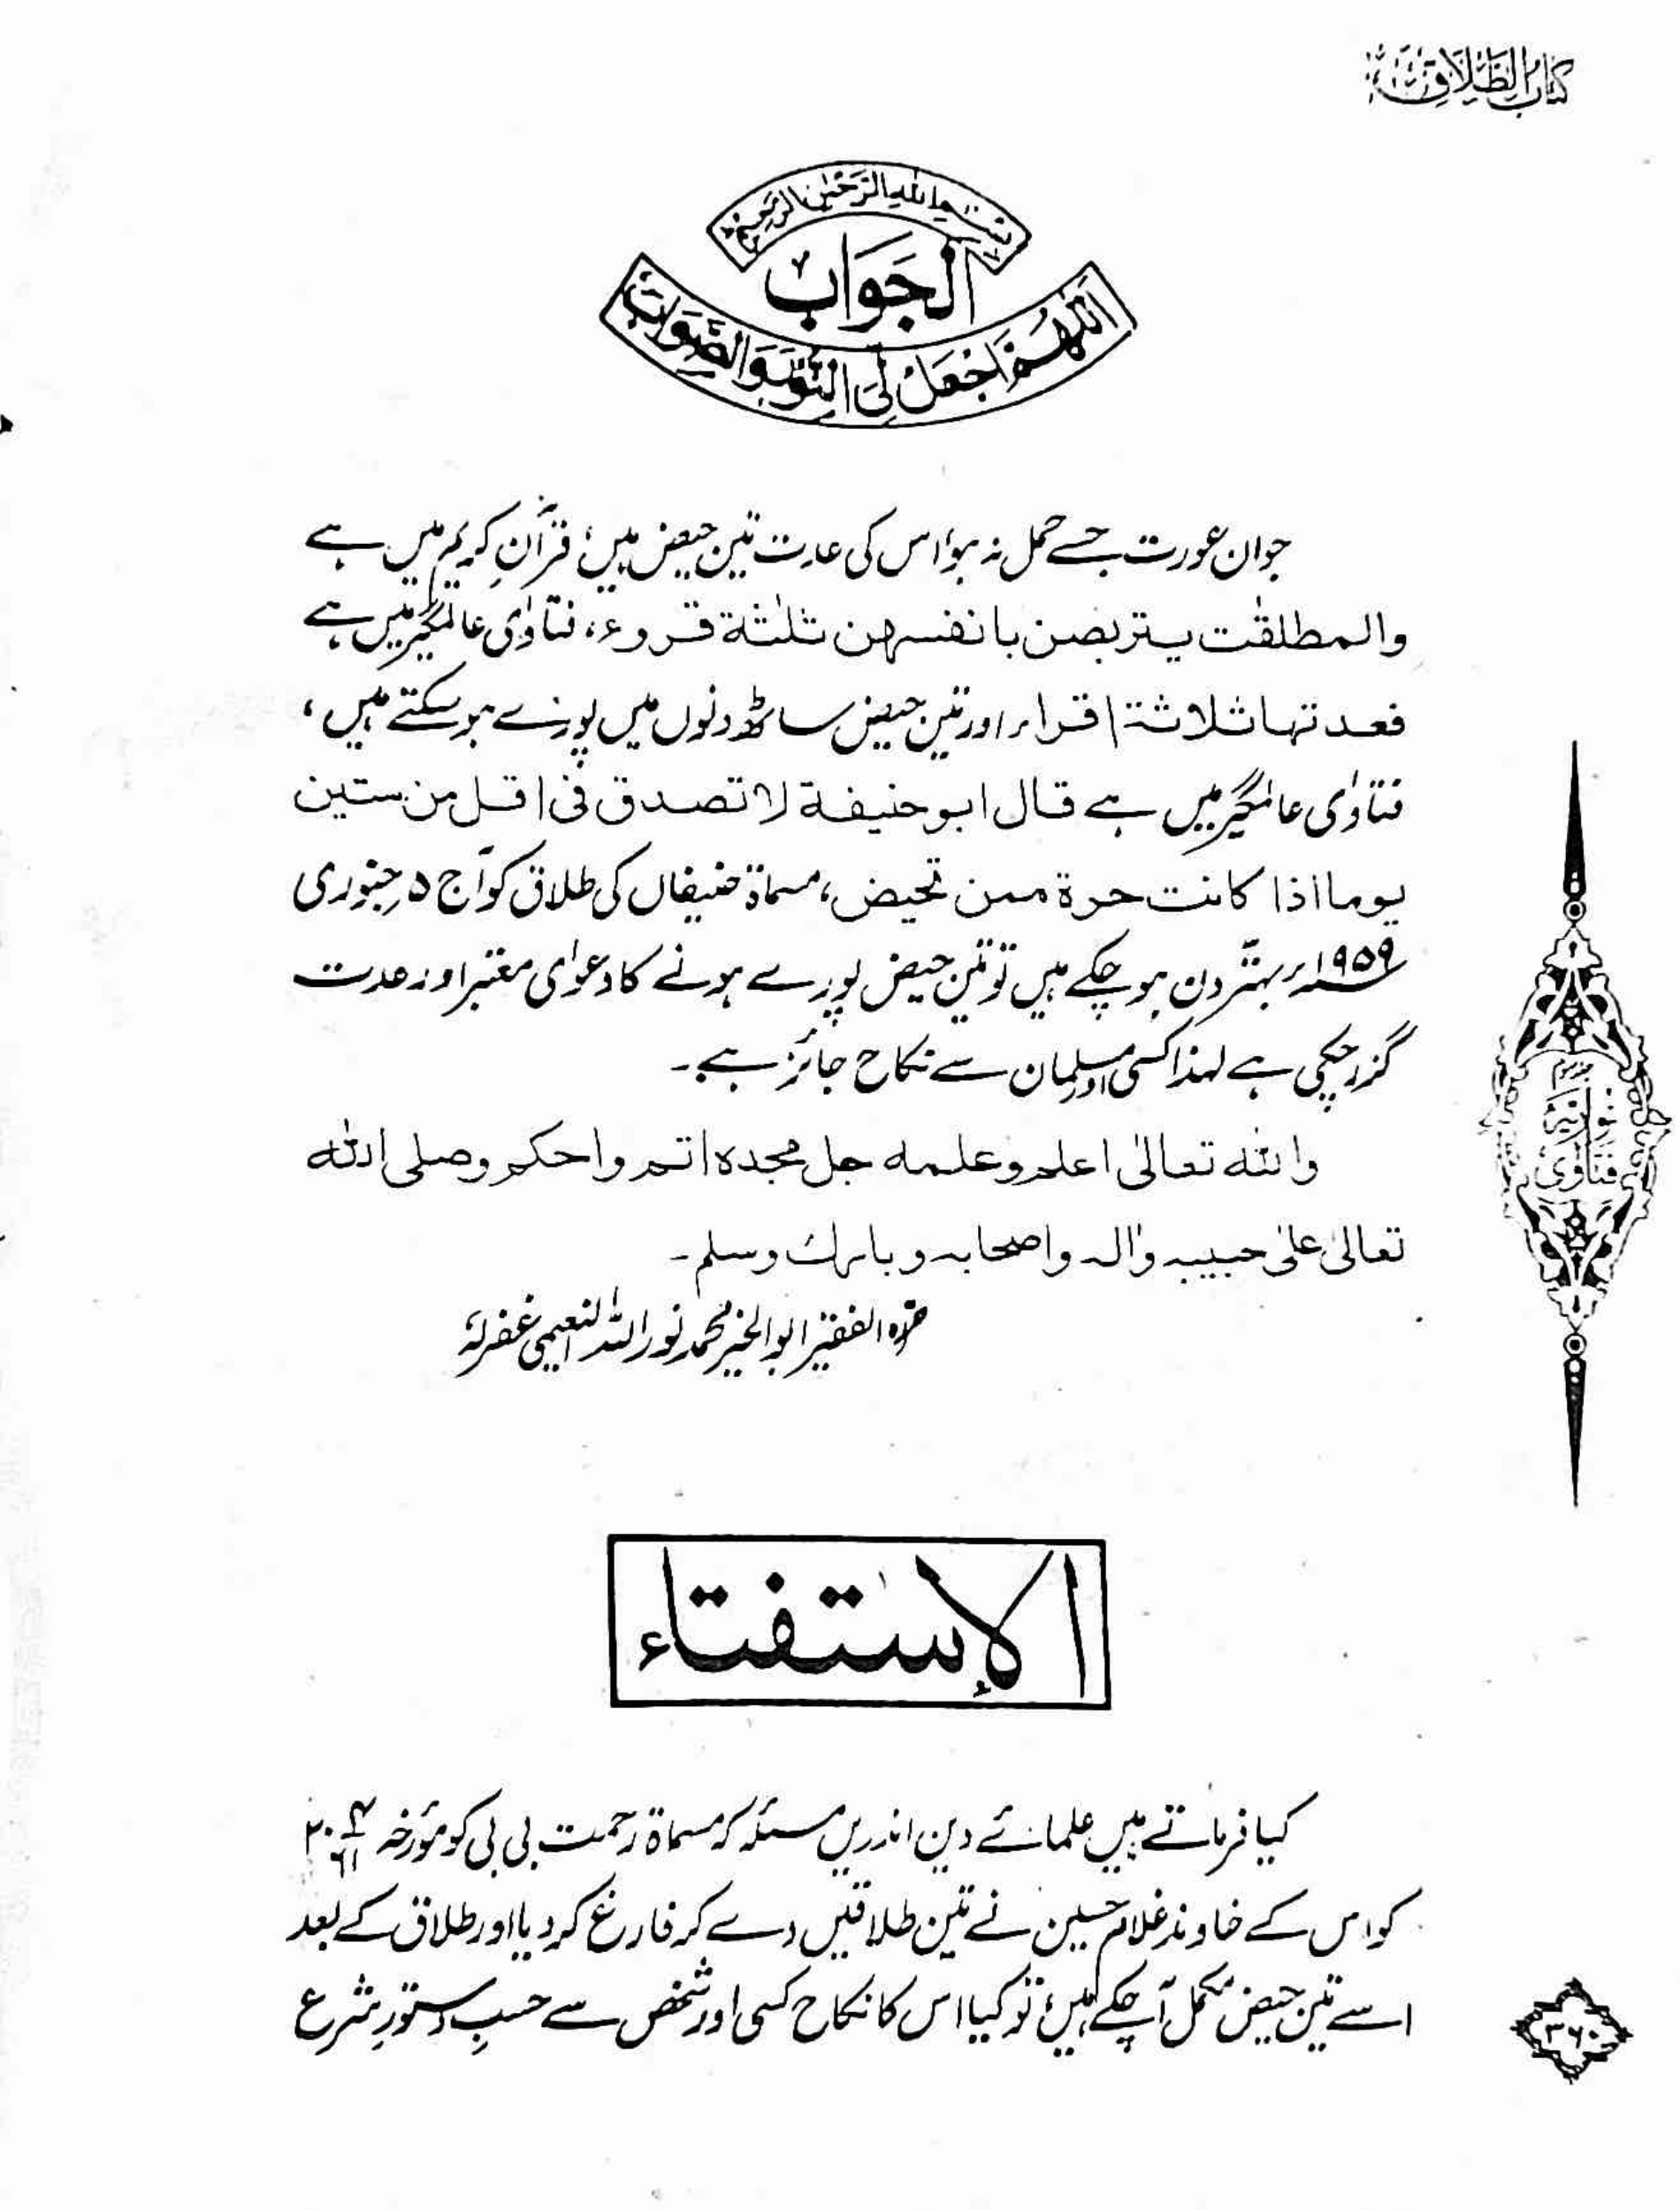 کتاب الطلاق
بسم اللہ الرحمٰن الرحیم
الجَوَابُ
اللّٰهُمَّ اجْعَلْ لِيَ النُّوْرَ وَالصَّوَابَ
جوان عورت جسے حمل نہ ہو، اس کی عدت تین حیض ہیں، قرآنِ کریم میں ہے
والمطلقٰت یتربصن بانفسھن ثلٰثۃ قروء، فتاوٰی عالمگیر میں ہے
فعدتھا ثلاثۃ اقراء اور تین حیض ساٹھ دنوں میں پورے ہو سکتے ہیں،
فتاوٰی عالمگیر میں ہے قال ابو حنیفۃ لا تصدق فی اقل من ستین
یوما اذا کانت حرۃ ممن تحیض، مسماۃ حنیفاں کی طلاق کو آج ۵ جنوری
۱۹۵۹ء بہتّر دن ہو چکے ہیں تو تین حیض پورے ہونے کا دعوٰی معتبر اور عدت
گزر چکی ہے لہذا کسی اور مسلمان سے نکاح جائز ہے۔
واللہ تعالیٰ اعلم وعلمہ جل مجدہ اتم واحکم وصلی اللہ
تعالیٰ علیٰ حبیبہ واٰلہ واصحابہ وبارك وسلم۔
حررہ الفقیر ابوالخیر محمد نور اللہ النعیمی غفرلہٗ
فتاوٰی نوریہ
الإستفتاء
کیا فرماتے ہیں علمائے دین اندریں مسئلہ کہ مسماۃ رحمت بی بی کو مؤرخہ
کو اس کے خاوند غلام حسین نے تین طلاقیں دے کر فارغ کر دیا اور طلاق کے بعد
اسے تین حیض مکمل آ چکے ہیں، تو کیا اس کا نکاح کسی اور شخص سے حسبِ دستورِ شرع
۳۶۰